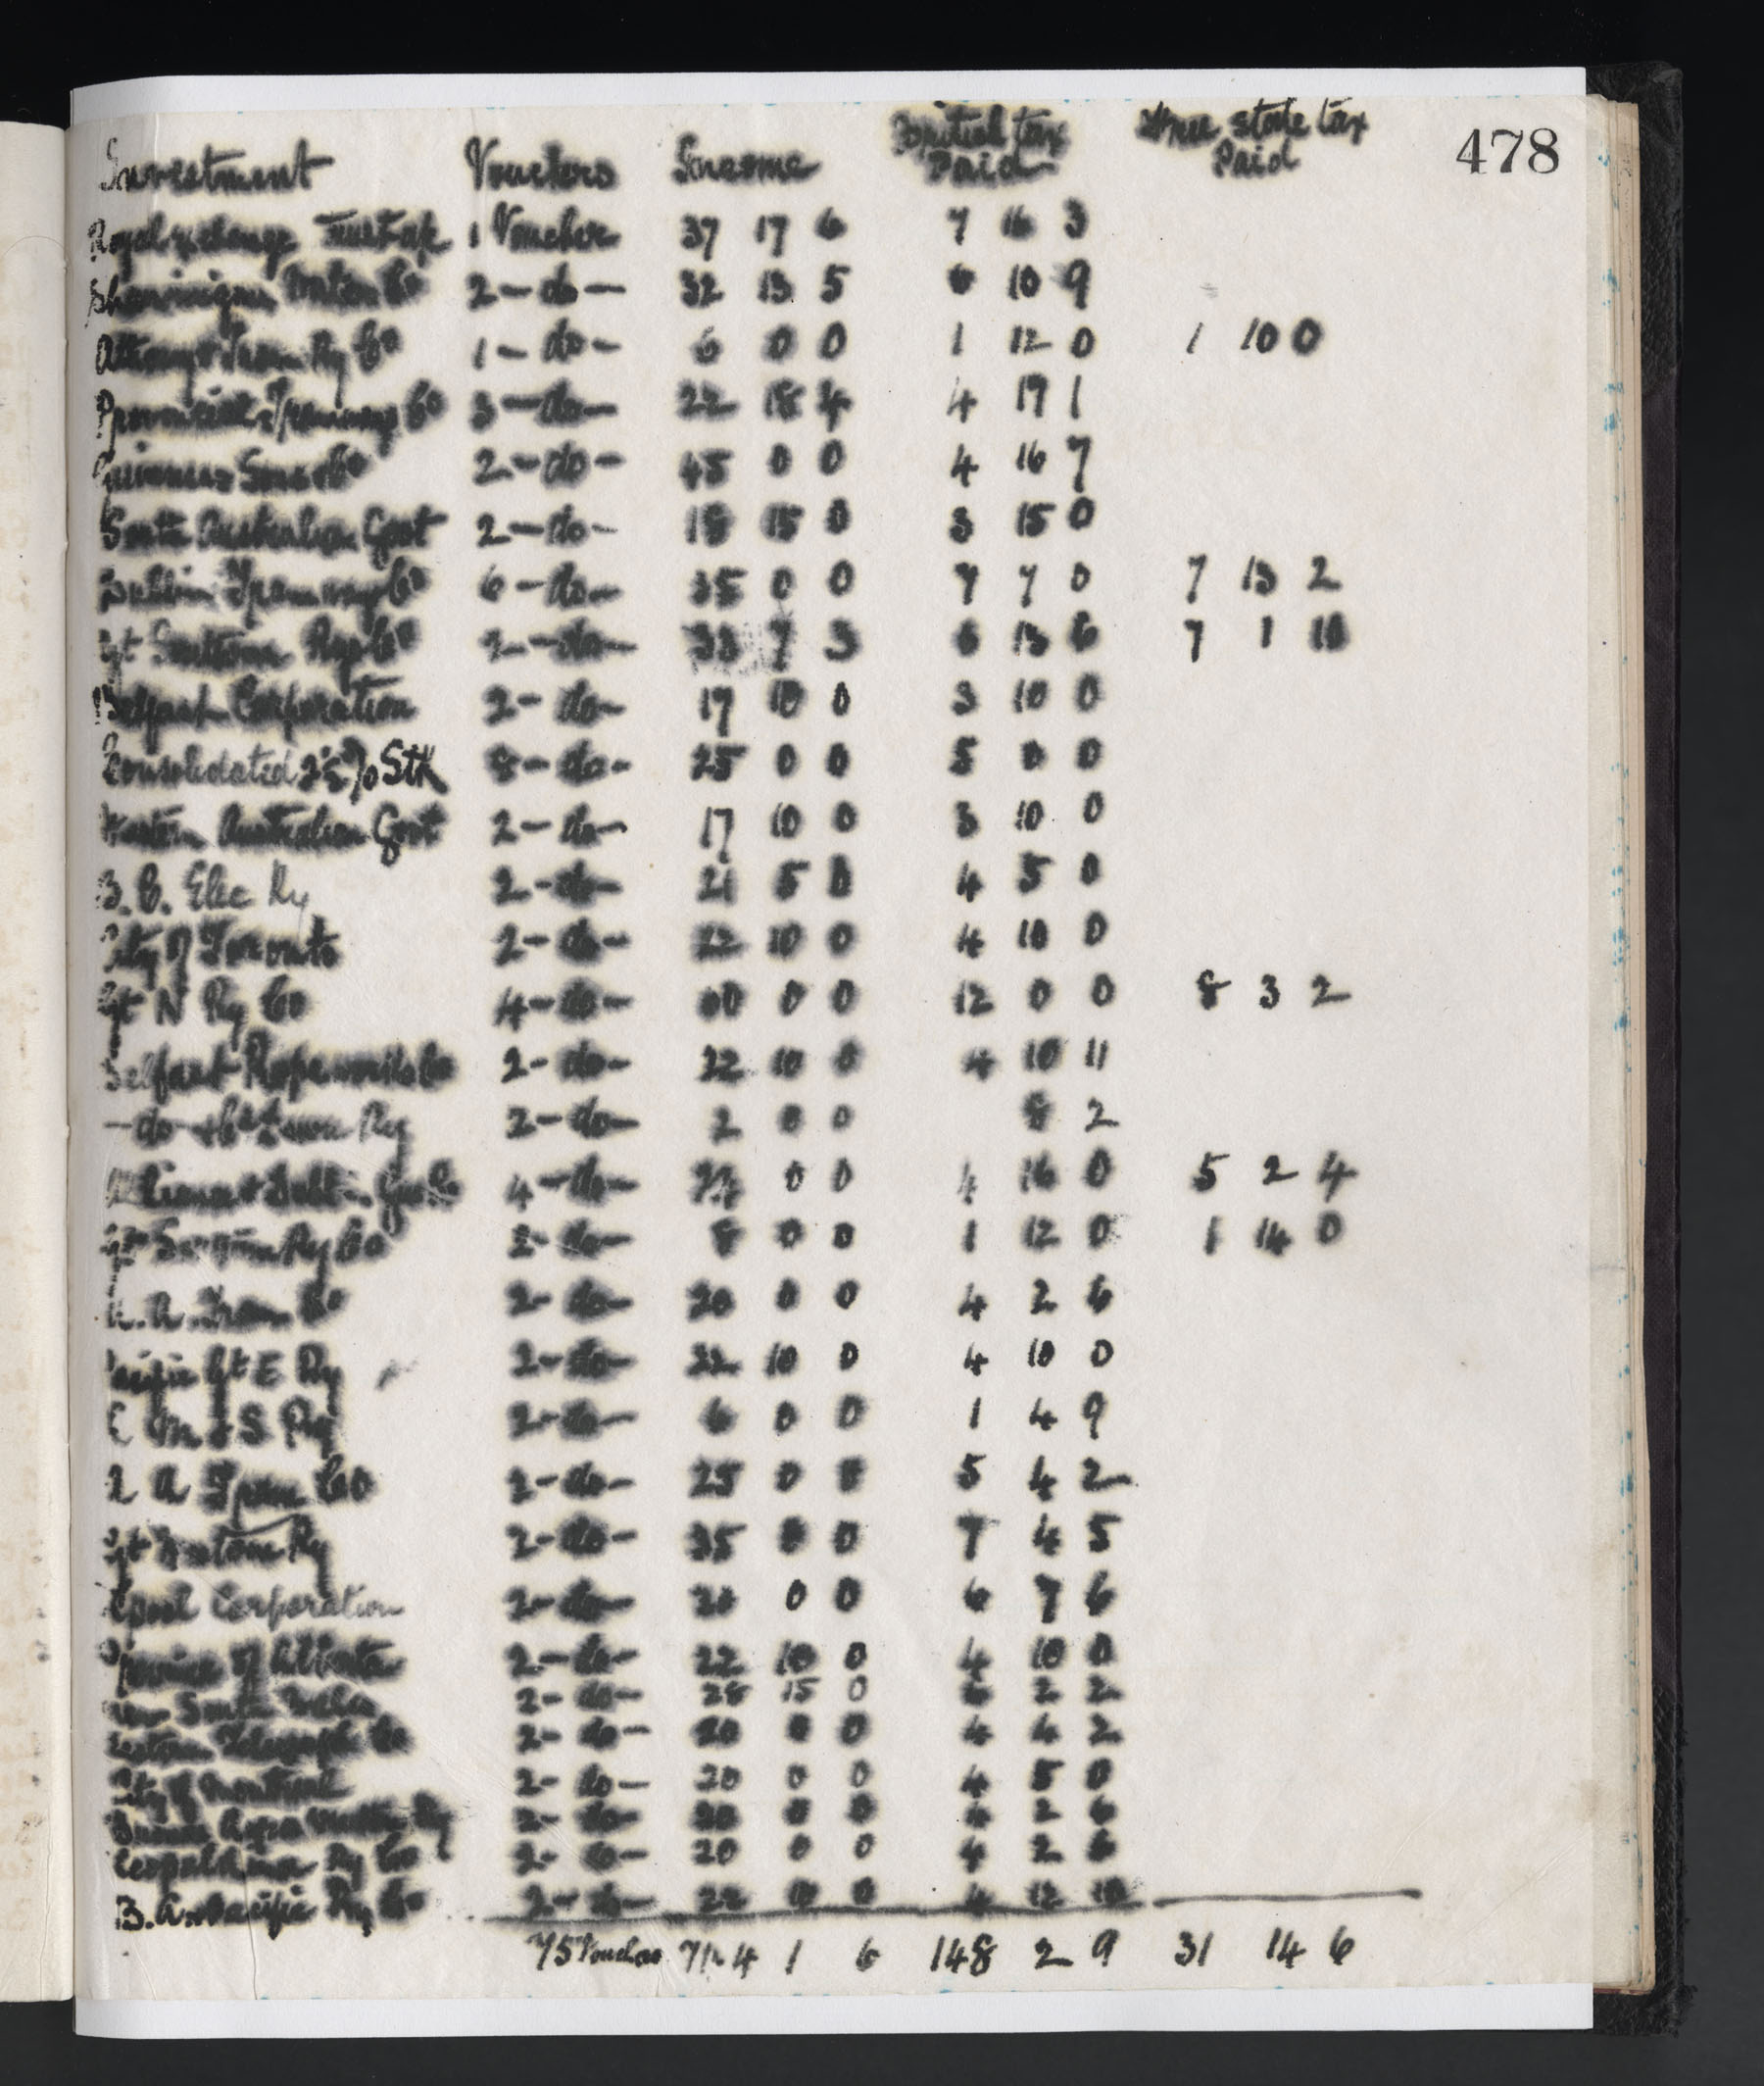 478
Investment Vouchers Income British tax Paid Free state tax Paid
Royal Exchange 1 Voucher 37 17 6 7 16 3
Shawinigan Water Co 2 - do - 32 13 5 6 10 9
Tram Ry Co 1 - do - 6 0 0 1 12 0 1 10 0
Provincial Tramways Co 3 - do - 22 18 4 4 19 1
Guinness Sons Co 2 - do - 45 0 0 4 16 7
South Australian Govt 2 - do - 18 15 0 3 15 0
Dublin Tramway Co 6 - do - 35 0 0 7 7 0 7 13 2
Gt Southern Rys Co 2 - do - 33 7 3 6 13 6 7 1 10
Belfast Corporation 2 - do - 17 10 0 3 10 0
Consolidated 2½% Stk 8 - do - 25 0 0 5 0 0
Western Australian Govt 2 - do - 17 10 0 3 10 0
B. C. Elec Ry 2 - do - 21 5 0 4 5 0
City of Toronto 2 - do - 22 10 0 4 10 0
Gt N Ry Co 4 - do - 60 0 0 12 0 0 8 3 2
Belfast Ropeworks Co 2 - do - 22 10 0 4 10 11
- do - & Co Down Ry 2 - do - 2 0 0 8 2
Alliance & Dublin Gas Co 4 - do - 24 0 0 4 16 0 5 2 4
Gt Southern Ry Co 2 - do - 8 0 0 1 12 0 1 14 0
A. A. Tram Co 2 - do - 20 0 0 4 2 6
Pacific Gt E Ry 2 - do - 22 10 0 4 10 0
M & S Ry 2 - do - 6 0 0 1 4 9
A Tram Co 2 - do - 25 0 0 5 4 2
Gt Western Ry 2 - do - 35 0 0 7 4 5
Lpool Corporation 2 - do - 0 0 6 7 6
Province of Alberta 2 - do - 22 10 0 4 10 0
New South Wales 2 - do - 28 15 0 6 2 2
Western Telegraph Co 2 - do - 20 0 0 4 4 2
City of Montreal 2 - do - 20 0 0 4 5 0
Buenos Ayres Western Ry 2 - do - 20 0 0 4 2 6
Leopoldina Ry Co 2 - do - 20 0 0 4 2 6
B. A. Pacific Ry Co 2 - do - 22 10 0 4 12 10
75 Vouchers 714 1 6 148 2 9 31 14 6